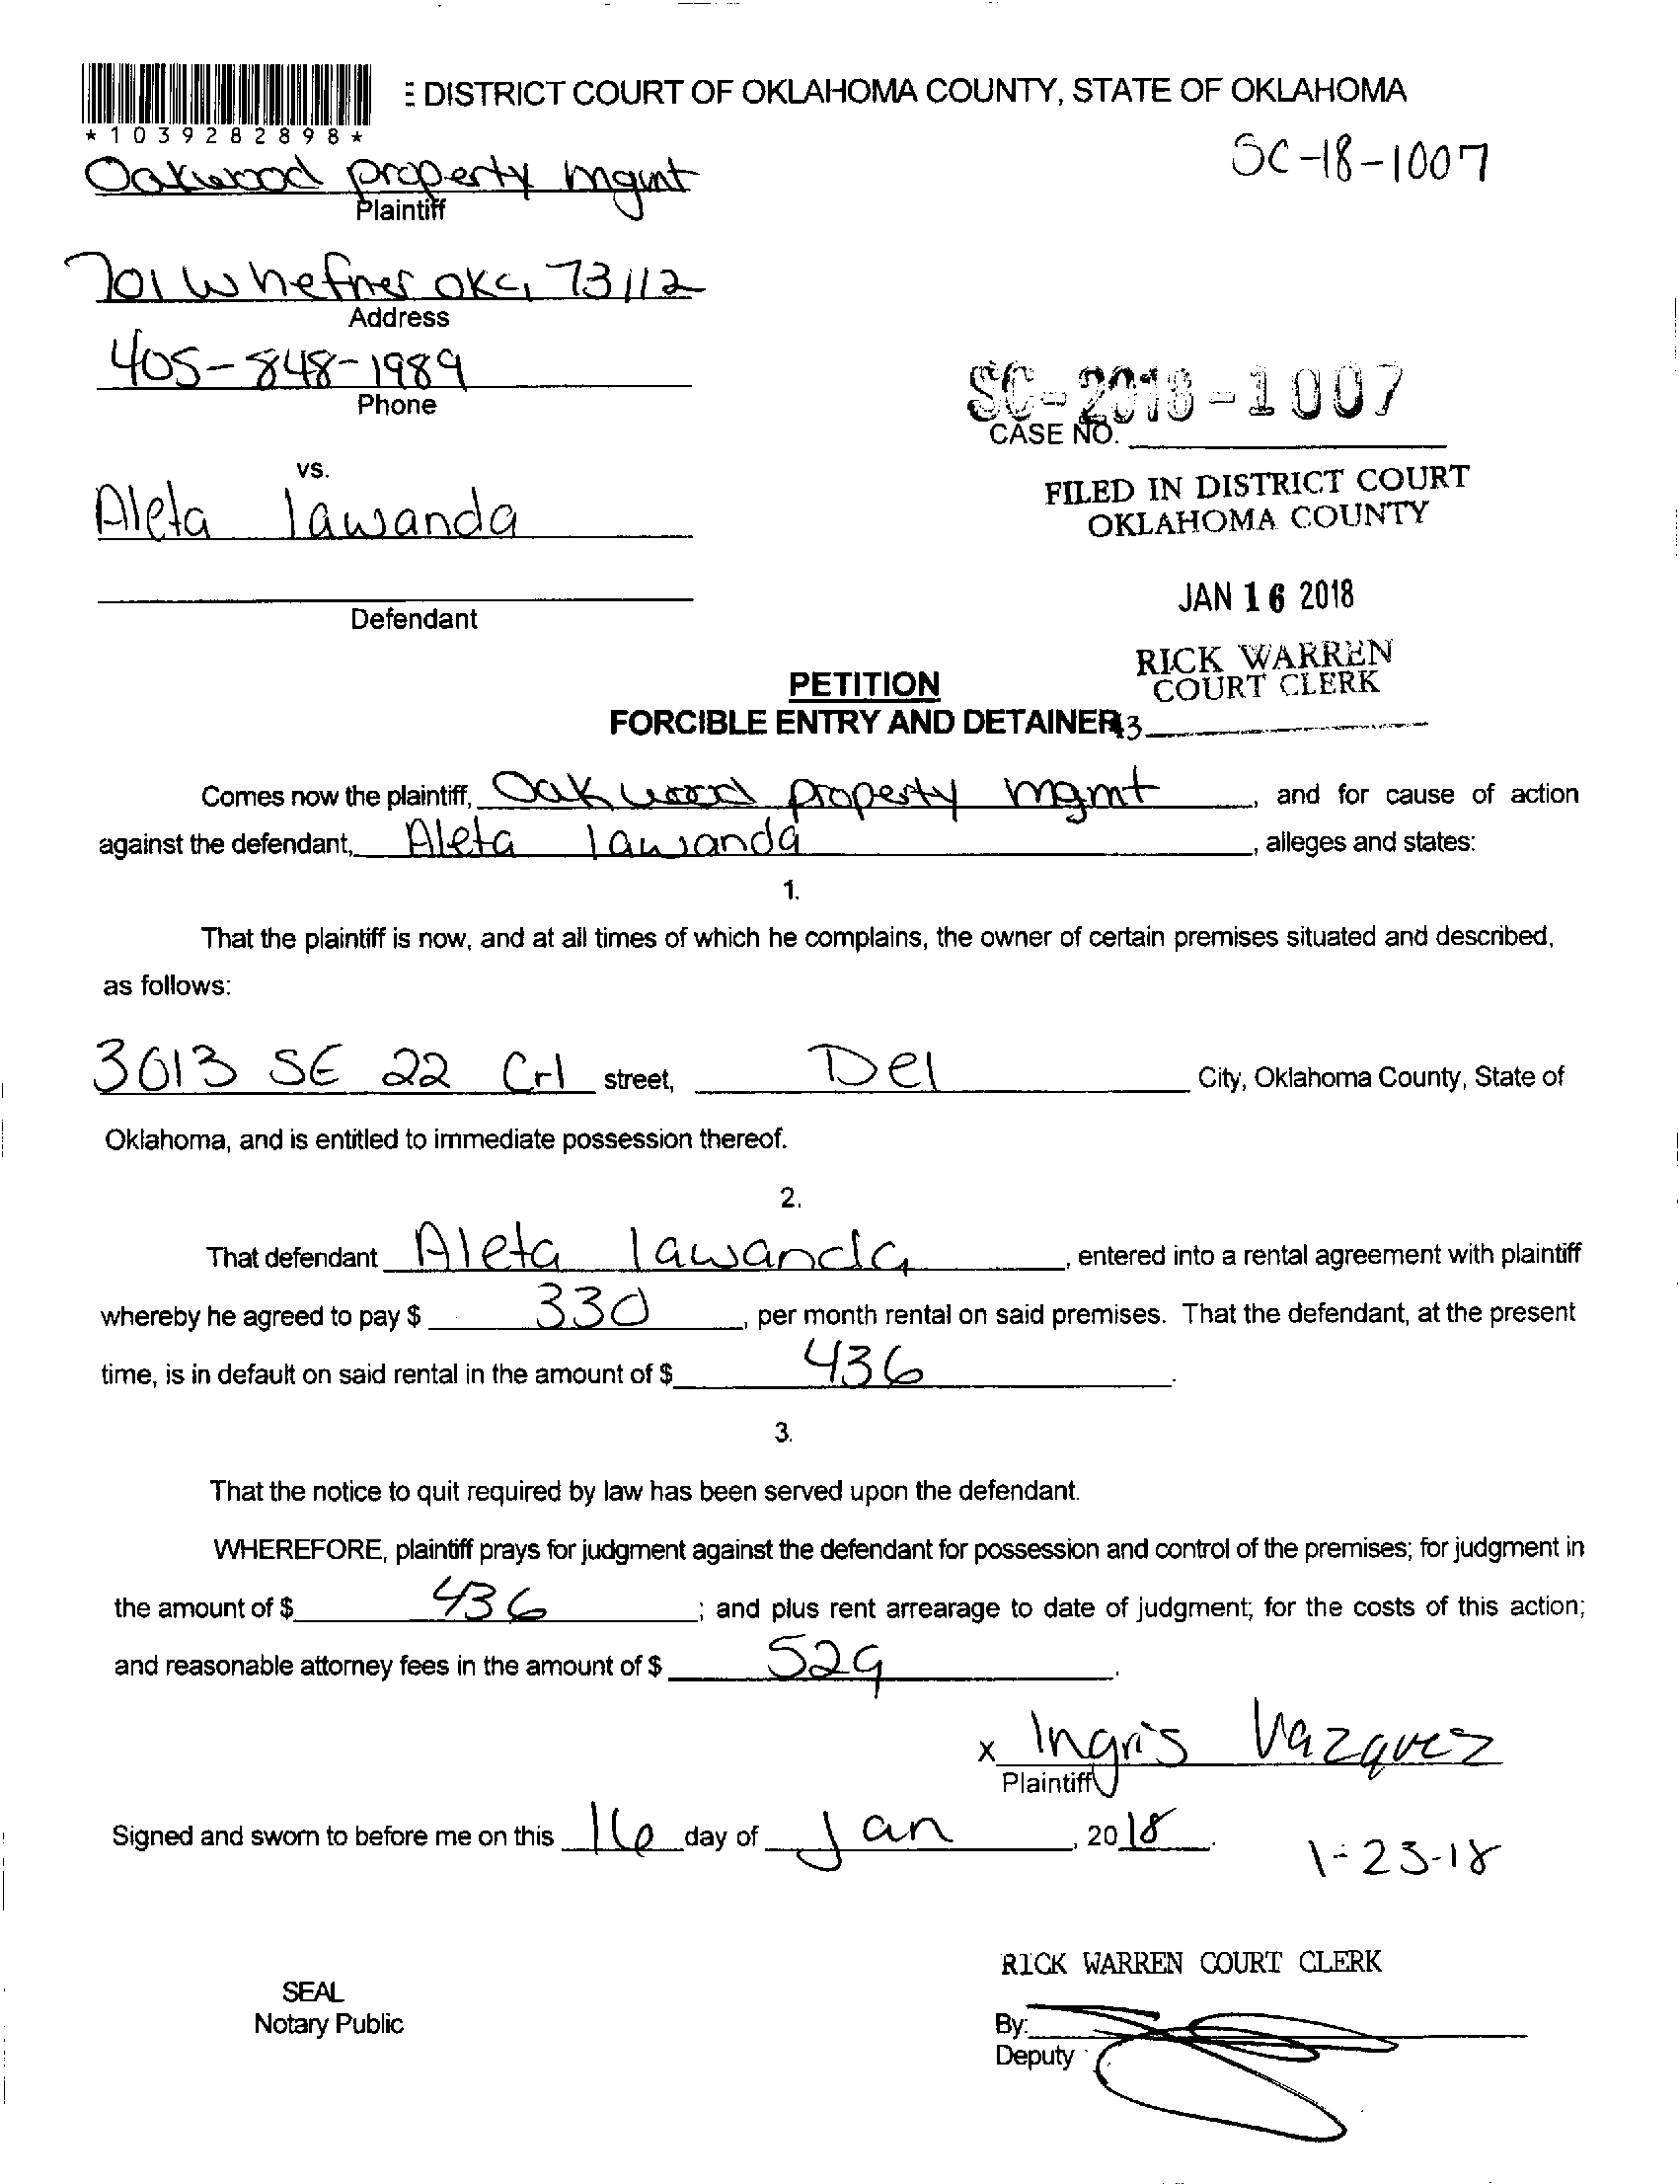 DISTRICT COURT OF OKLAHOMA COUNTY, STATE OF OKLAHOMA
*1039282898*
SC-18-1007
Oakwood property mgmt
Plaintiff
701 W hefner okc, 73112
Address
405-848-1989
Phone
SC-2018-1007
CASE NO.
vs.
Aleta lawanda
FILED IN DISTRICT COURT
OKLAHOMA COUNTY
Defendant
JAN 16 2018
RICK WARREN
COURT CLERK
PETITION
FORCIBLE ENTRY AND DETAINER
Comes now the plaintiff, Oakwood property mgmt, and for cause of action
against the defendant, Aleta lawanda, alleges and states:
1.
That the plaintiff is now, and at all times of which he complains, the owner of certain premises situated and described,
as follows:
3613 SE 22 Crl street, Del City, Oklahoma County, State of
Oklahoma, and is entitled to immediate possession thereof.
2.
That defendant Aleta lawanda, entered into a rental agreement with plaintiff
whereby he agreed to pay $ 330, per month rental on said premises. That the defendant, at the present
time, is in default on said rental in the amount of $ 436.
3.
That the notice to quit required by law has been served upon the defendant.
WHEREFORE, plaintiff prays for judgment against the defendant for possession and control of the premises; for judgment in
the amount of $ 436; and plus rent arrearage to date of judgment; for the costs of this action;
and reasonable attorney fees in the amount of $ 529.
x Ingris Vazquez
Plaintiff
Signed and sworn to before me on this 16 day of Jan, 2018.
1-23-18
RICK WARREN COURT CLERK
SEAL
Notary Public
By:
Deputy